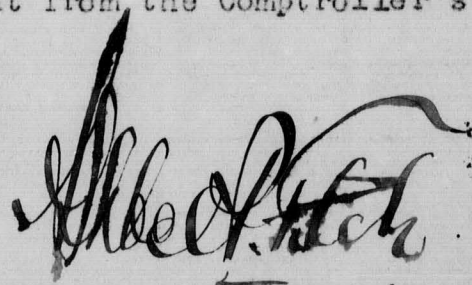 from the Comptroller's
Albert Fitch